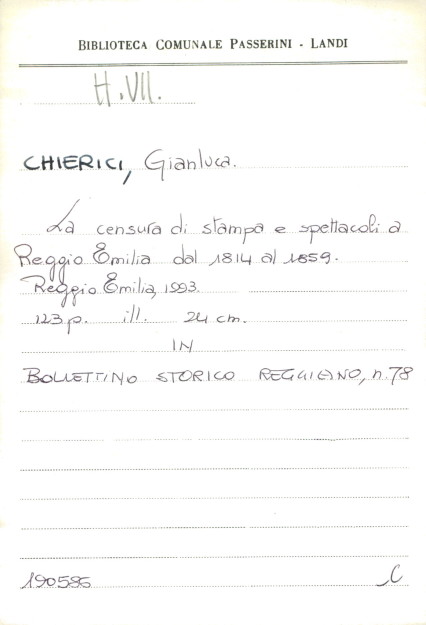 BIBLIOTECA COMUNALE PASSERINI - LANDI
H.VII.
CHIERICI, Gianluca.
La censura di stampa e spettacoli a
Reggio Emilia dal 1814 al 1859.
Reggio Emilia, 1993.
123 p. ill. 24 cm.
IN
BOLLETTINO STORICO REGGIANO, n. 78
190586 C